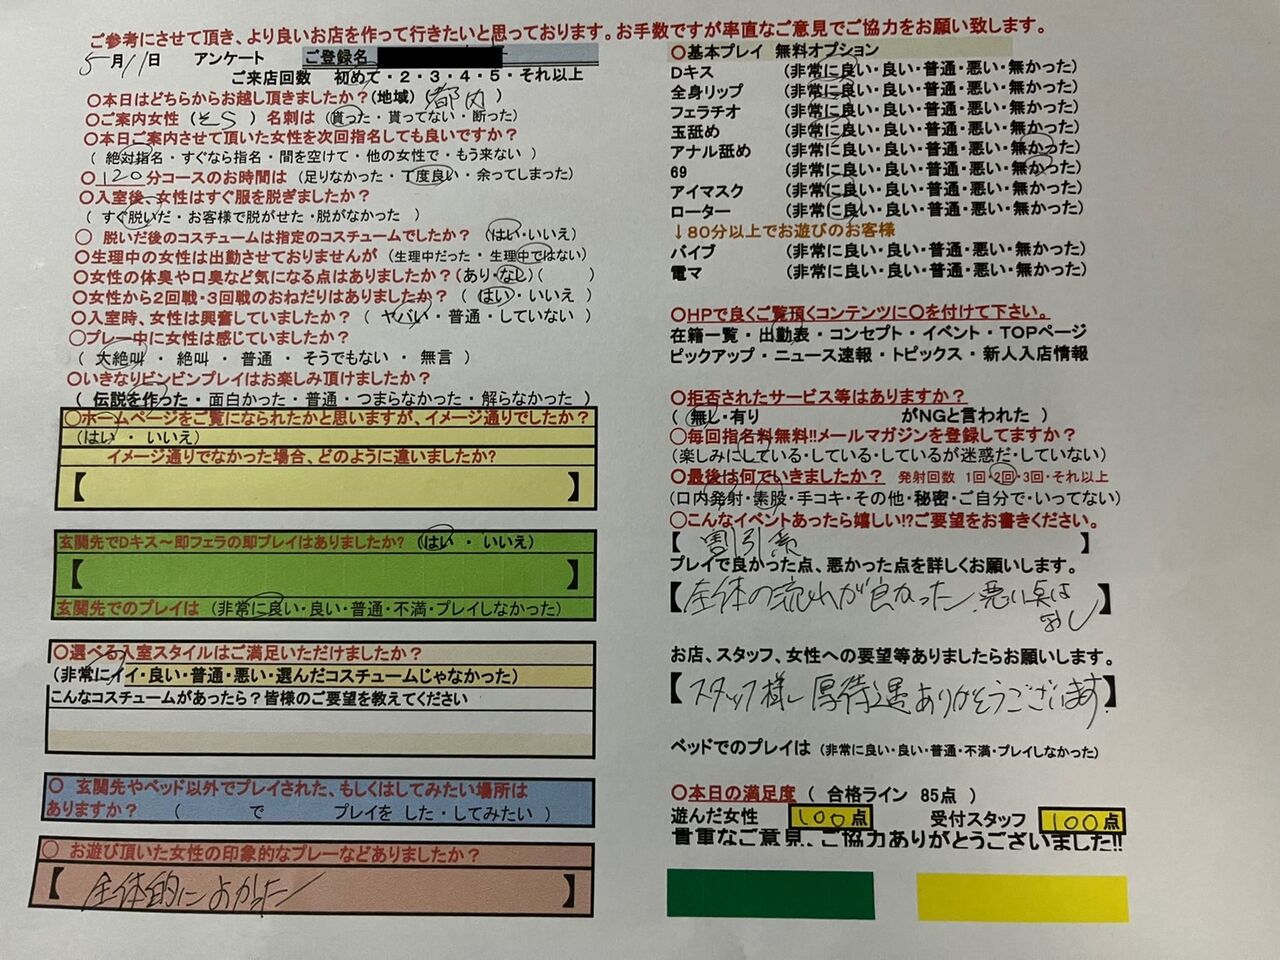 ご参考にさせて頂き、より良いお店を作って行きたいと思っております。お手数ですが率直なご意見でご協力をお願い致します。
5月11日 アンケート ご登録名
ご来店回数 初めて・2・3・4・5・それ以上
〇本日はどちらからお越し頂きましたか?(地域)(都内)
〇ご案内女性 (そら) 名刺は (貰った・貰ってない・断った)
〇本日ご案内させて頂いた女性を次回指名しても良いですか?
( 絶対指名・すぐなら指名・間を空けて・他の女性で・もう来ない )
〇 120分コースのお時間は (足りなかった・丁度良い・余ってしまった)
〇入室後、女性はすぐ服を脱ぎましたか?
( すぐ脱いだ・お客様で脱がせた・脱がなかった )
〇 脱いだ後のコスチュームは指定のコスチュームでしたか? (はい・いいえ)
〇生理中の女性は出勤させておりませんが (生理中だった・生理中ではない)
〇女性の体臭や口臭など気になる点はありましたか?(あり・なし)( )
〇女性から2回戦・3回戦のおねだりはありましたか? ( はい・いいえ )
〇入室時、女性は興奮していましたか? ( ヤバい・普通・していない )
〇プレー中に女性は感じていましたか?
( 大絶叫・ 絶叫 ・ 普通 ・ そうでもない ・ 無言 )
〇いきなりビンビンプレイはお楽しみ頂けましたか?
( 伝説を作った・面白かった・普通・つまらなかった・解らなかった )
〇ホームページをご覧になられたかと思いますが、イメージ通りでしたか?
(はい ・ いいえ)
イメージ通りでなかった場合、どのように違いましたか?
【 】
玄関先でDキス〜即フェラの即プレイはありましたか? (はい ・ いいえ)
【 】
玄関先でのプレイは (非常に良い・良い・普通・不満・プレイしなかった)
〇選べる入室スタイルはご満足いただけましたか?
(非常にイイ・良い・普通・悪い・選んだコスチュームじゃなかった)
こんなコスチュームがあったら?皆様のご要望を教えてください
〇 玄関先やベッド以外でプレイされた、もしくはしてみたい場所は
ありますか? ( で プレイを した・してみたい )
〇 お遊び頂いた女性の印象的なプレーなどありましたか?
【 全体的によかった 】
〇基本プレイ 無料オプション
Dキス (非常に良い・良い・普通・悪い・無かった)
全身リップ (非常に良い・良い・普通・悪い・無かった)
フェラチオ (非常に良い・良い・普通・悪い・無かった)
玉舐め (非常に良い・良い・普通・悪い・無かった)
アナル舐め (非常に良い・良い・普通・悪い・無かった)
69 (非常に良い・良い・普通・悪い・無かった)
アイマスク (非常に良い・良い・普通・悪い・無かった)
ローター (非常に良い・良い・普通・悪い・無かった)
↓80分以上でお遊びのお客様
バイブ (非常に良い・良い・普通・悪い・無かった)
電マ (非常に良い・良い・普通・悪い・無かった)
〇HPで良くご覧頂くコンテンツに〇を付けて下さい。
在籍一覧・出勤表・コンセプト・イベント・TOPページ
ピックアップ・ニュース速報・トピックス・新人入店情報
〇拒否されたサービス等はありますか?
( (無し・有り がNGと言われた )
〇毎回指名料無料!!メールマガジンを登録してますか?
(楽しみにしている・している・しているが迷惑だ・していない)
〇最後は何でいきましたか? 発射回数 1回・2回・3回・それ以上
(口内発射・素股・手コキ・その他・秘密・ご自分で・いってない)
〇こんなイベントあったら嬉しい!?ご要望をお書きください。
【 割引系 】
プレイで良かった点、悪かった点を詳しくお願いします。
【全体の流れが良かった、悪い点は
なし】
お店、スタッフ、女性への要望等ありましたらお願いします。
【スタッフ様し厚待遇ありがとうございます!】
ベッドでのプレイは (非常に良い・良い・普通・不満・プレイしなかった)
〇本日の満足度 ( 合格ライン 85点 )
遊んだ女性 100点 受付スタッフ 100点
貴重なご意見、ご協力ありがとうございました!!